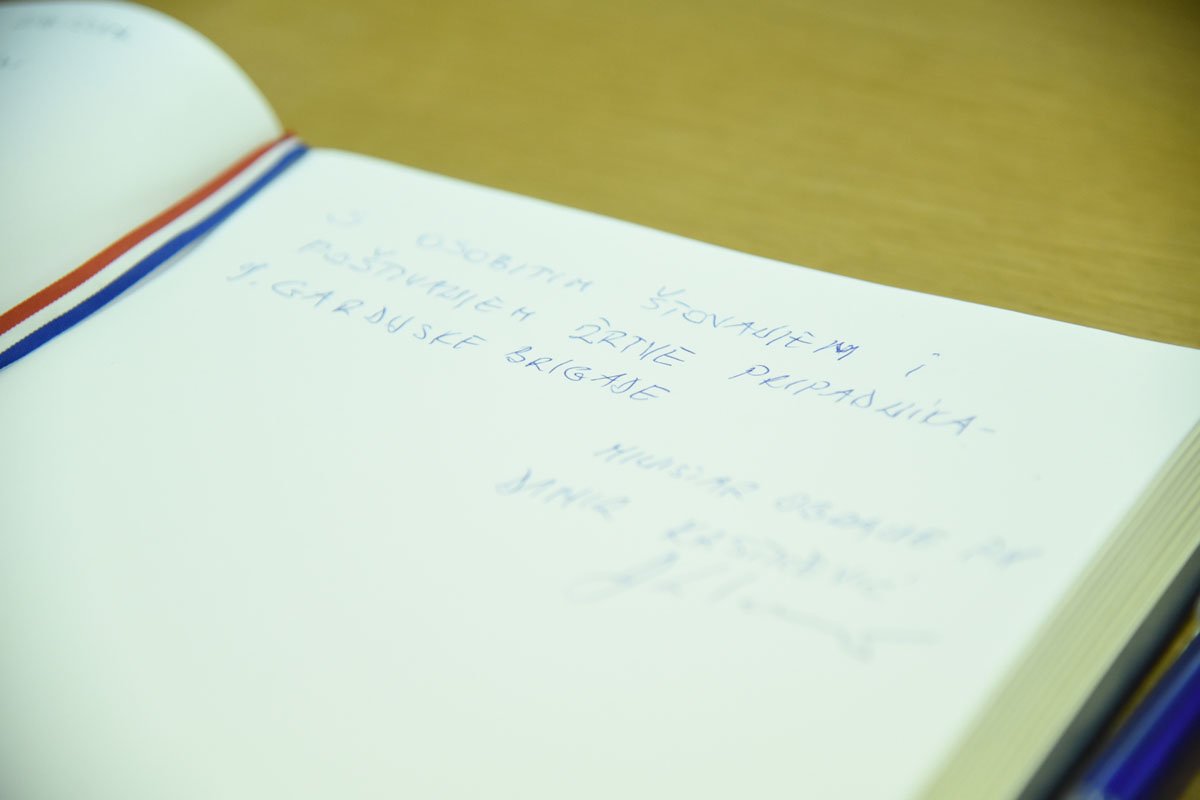 S OSOBITIM ŠTOVANJEM I
POŠTIVANJEM ŽRTVE PRIPADNIKA-
9. GARDIJSKE BRIGADE
MINISTAR OBRANE RH
DAMIR KRSTIČEVIĆ